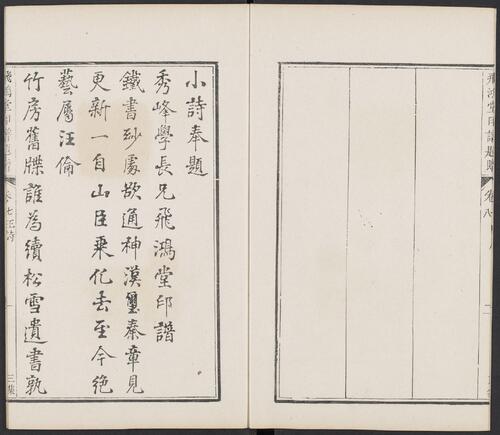 小詩奉題
秀峰學長兄飛鴻堂印譜
鐵書玅處欲通神漢璽秦章見
更新一自山臣乘化去至今絶
藝屬汪倫
竹房舊牒誰為續松雪遺書孰
卷七汪詩
三集
飛鴻堂印譜題辭
卷八